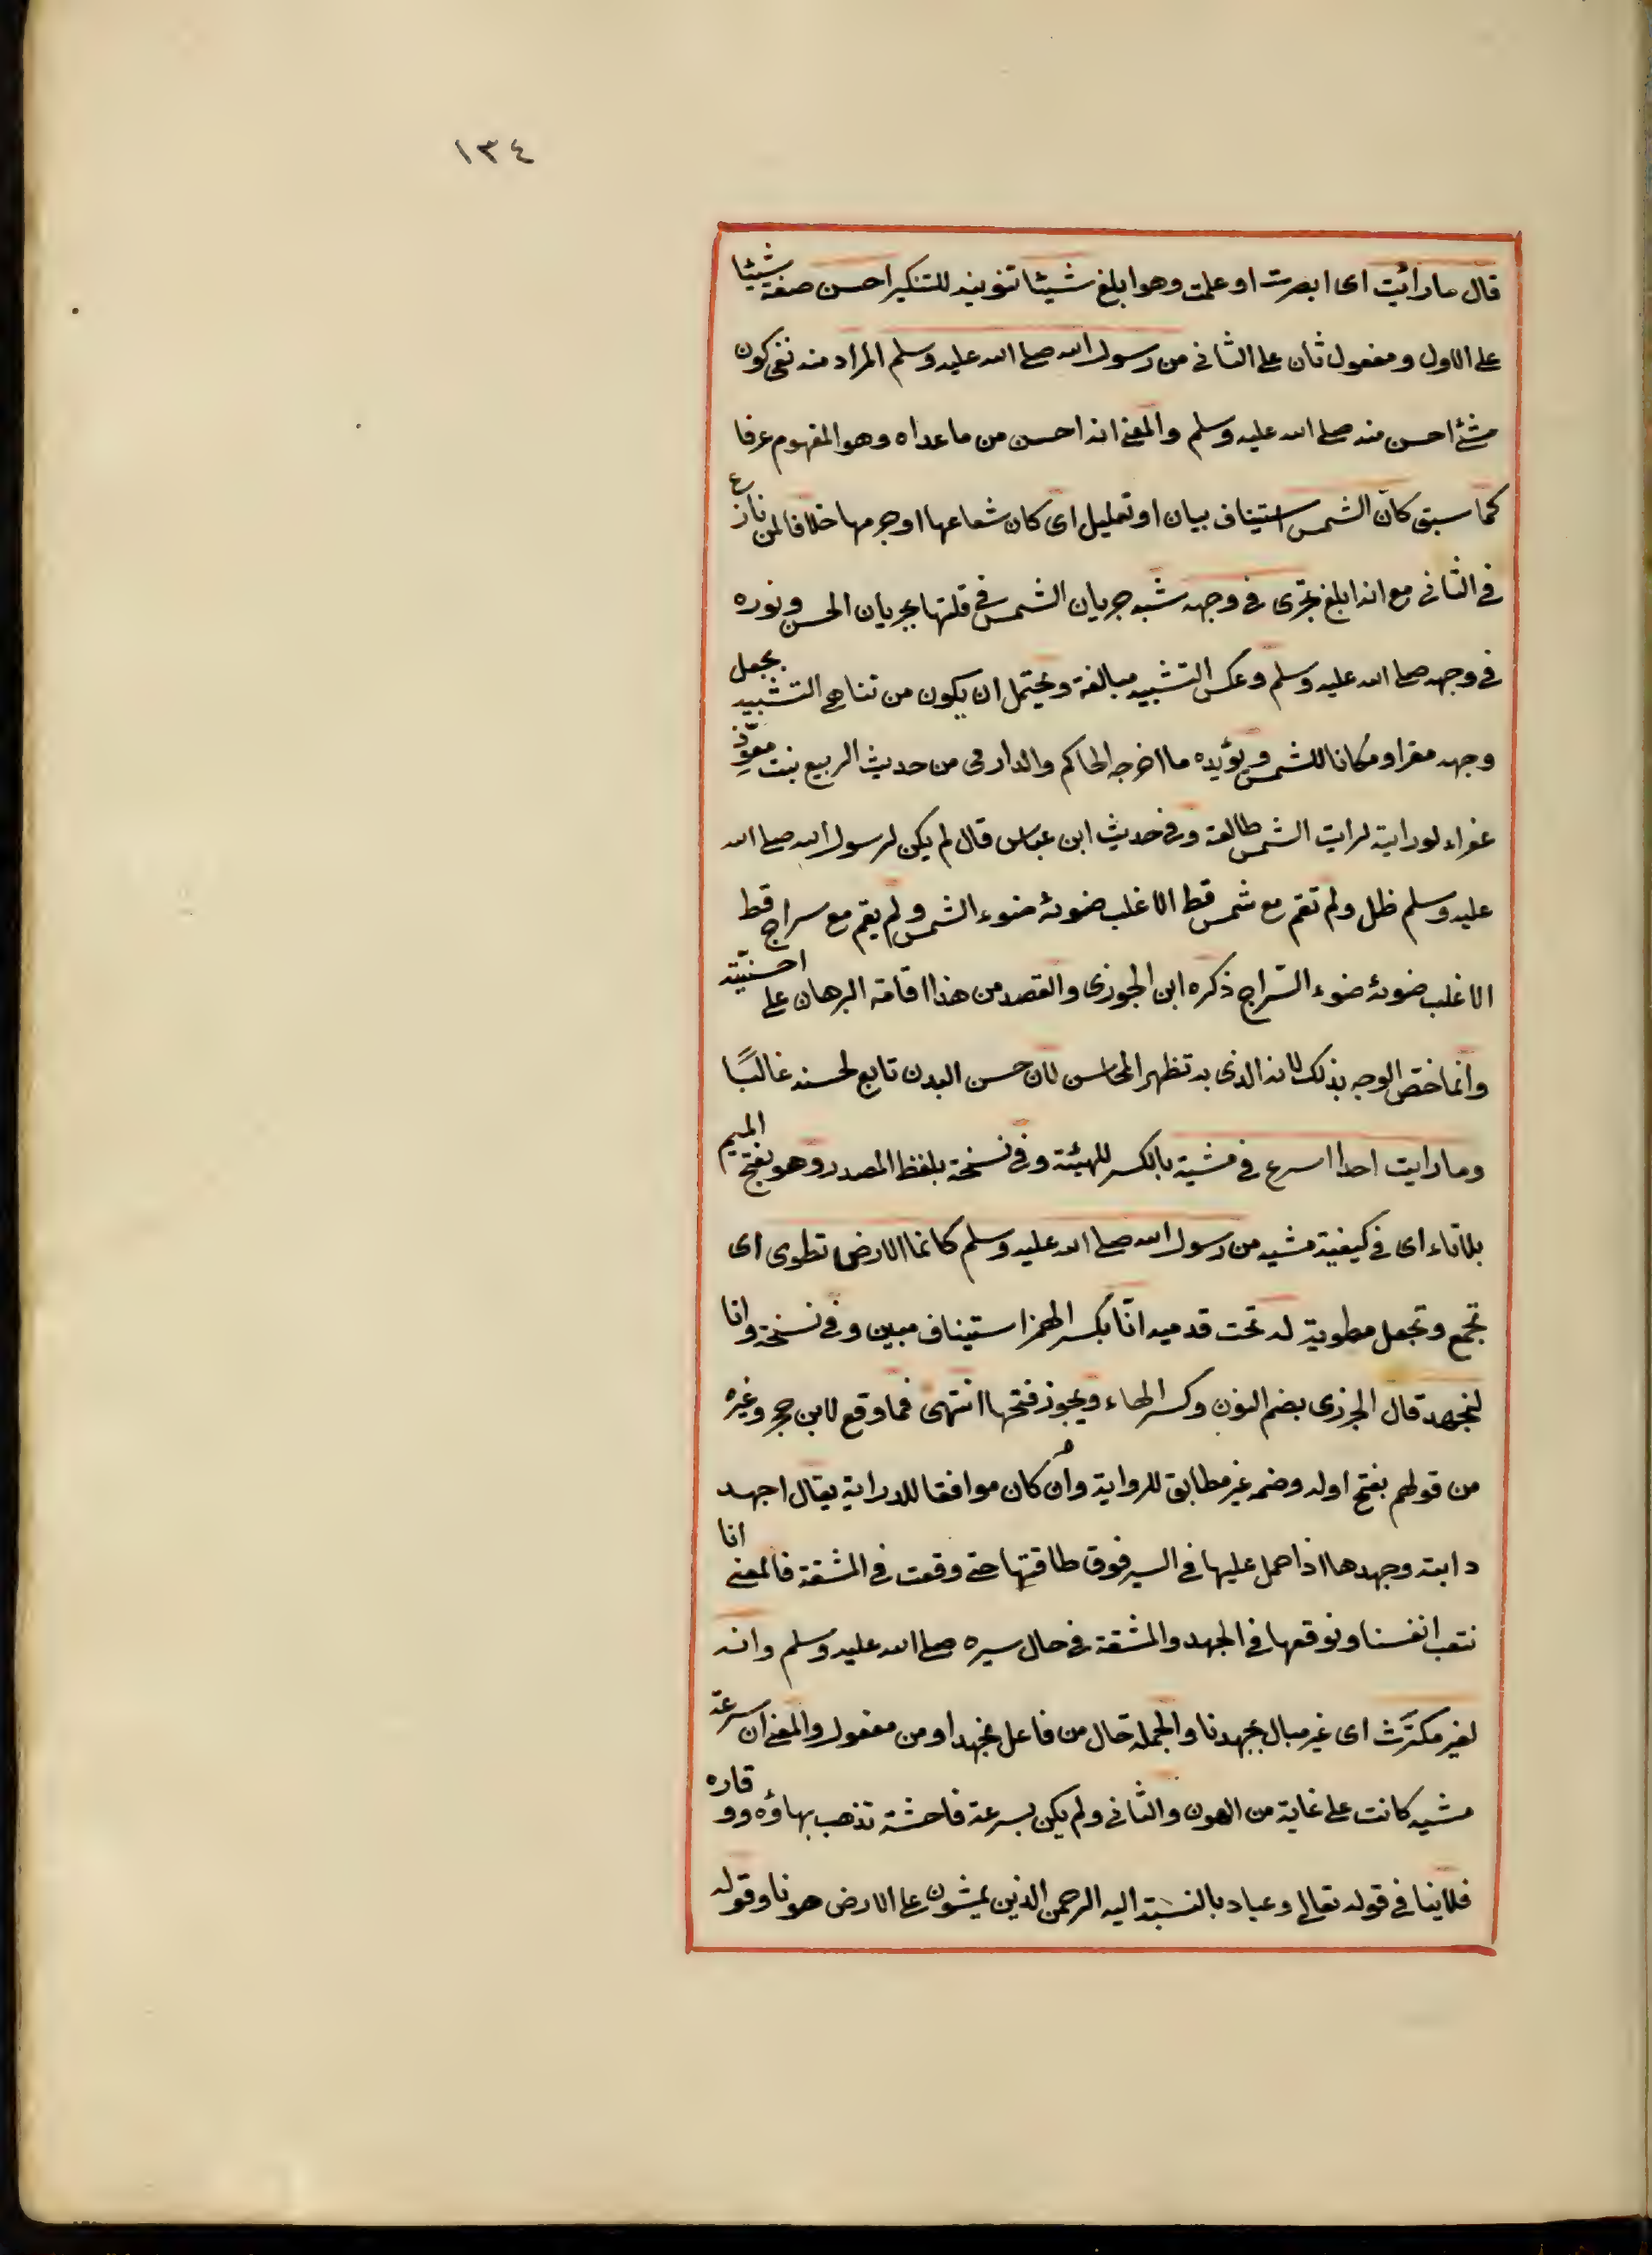 ١٣٤
قال ما رائيت اى ابصرت او علمت وهو ابلغ شيئا تنوينه للتنكير احسن صفة شيئا
على الاول ومفعول ثان على الثانى من رسول الله صلى الله عليه وسلم المراد منه نفى كون
شئ احسن منه صلى الله عليه وسلم والمعنى انه احسن من ما عداه وهو المفهوم عرفا
كما سبق كانّ الشمس استيناف بيان او تعليل اى كان شعاعها او جرمها خلافا لمن نازع
فى الثانى مع انه ابلغ تجرى فى وجهه شبه جريان الشمس فى فلتها بجريان الحسن ونوره
فى وجهه صلى الله عليه وسلم وعكس التشبيه مبالغة ويحتمل ان يكون من تناهى التشبيه بجعل
وجهه مقرا ومكانا للشمس ويؤيده ما اخرجه الحاكم والدارمى من حديث الربيع بنت معوّذ
عفراء لو رايته لرايت الشمس طالعة وفى حديث ابن عباس قال لم يكن لرسول الله صلى الله
عليه وسلم ظل ولم تقم مع شمس قط الا غلب ضوئه ضوء الشمس ولم يقم مع سراج قط
الا غلب ضوئه ضوء السّراج ذكره ابن الجوزى والقصد من هذا اقامة البرهان على احسنيّته
وانما خصّ الوجه بذلك لانه الذى به تظهر المحاسن لان حسن البدن تابع لحسنه غالبًا
وما رايت احدا اسرع فى مشية بالكسر للهيئة وفى نسخة بلفظ المصدر وهو بفتح الميم
بلا تاء اى فى كيفية مشيه من رسول الله صلى الله عليه وسلم كانما الارض تطوى اى
تجمع وتجعل مطوية له تحت قدميه انّا بكسر الهمز استيناف مبين وفى نسخة وانا
لنجهد قال الجزرى بضم النون وكسر الهاء ويجوز فتحها انتهى فما وقع لابن حجر وغيره
من قولهم بفتح اوله وضمه غير مطابق للرواية وان كان موافقا للدراية يقال اجهد
دابته وجهدها اذا حمل عليها فى السير فوق طاقتها حتى وقعت فى المشقة فالمعنى انا
نتعب انفسنا ونوقعها فى الجهد والمشقة فى حال سيره صلى الله عليه وسلم وانه
لغير مكترث اى غير مبال بجهدنا والجملة حال من فاعل نجهد او من مفعوله والمعنى ان سرعة
مشيه كانت على غاية من الهون والثانى ولم يكن بسرعة فاحشة تذهب بهاؤه ووقاره
فلا ينافى قوله تعالى وعباد بالنسبته اليه الرحمن الذين يمشون على الارض هونا وقوله